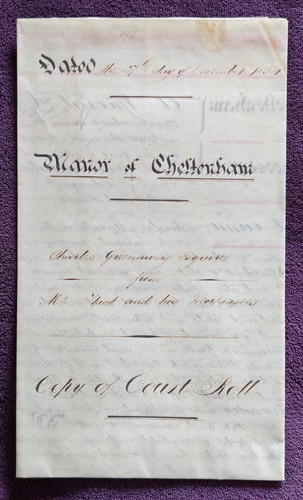 Dated the 27th day of December 18
Manor of Cheltenham
Charles Greenaway Esquire
from
Mr and his Mortgagee
Copy of Court Roll